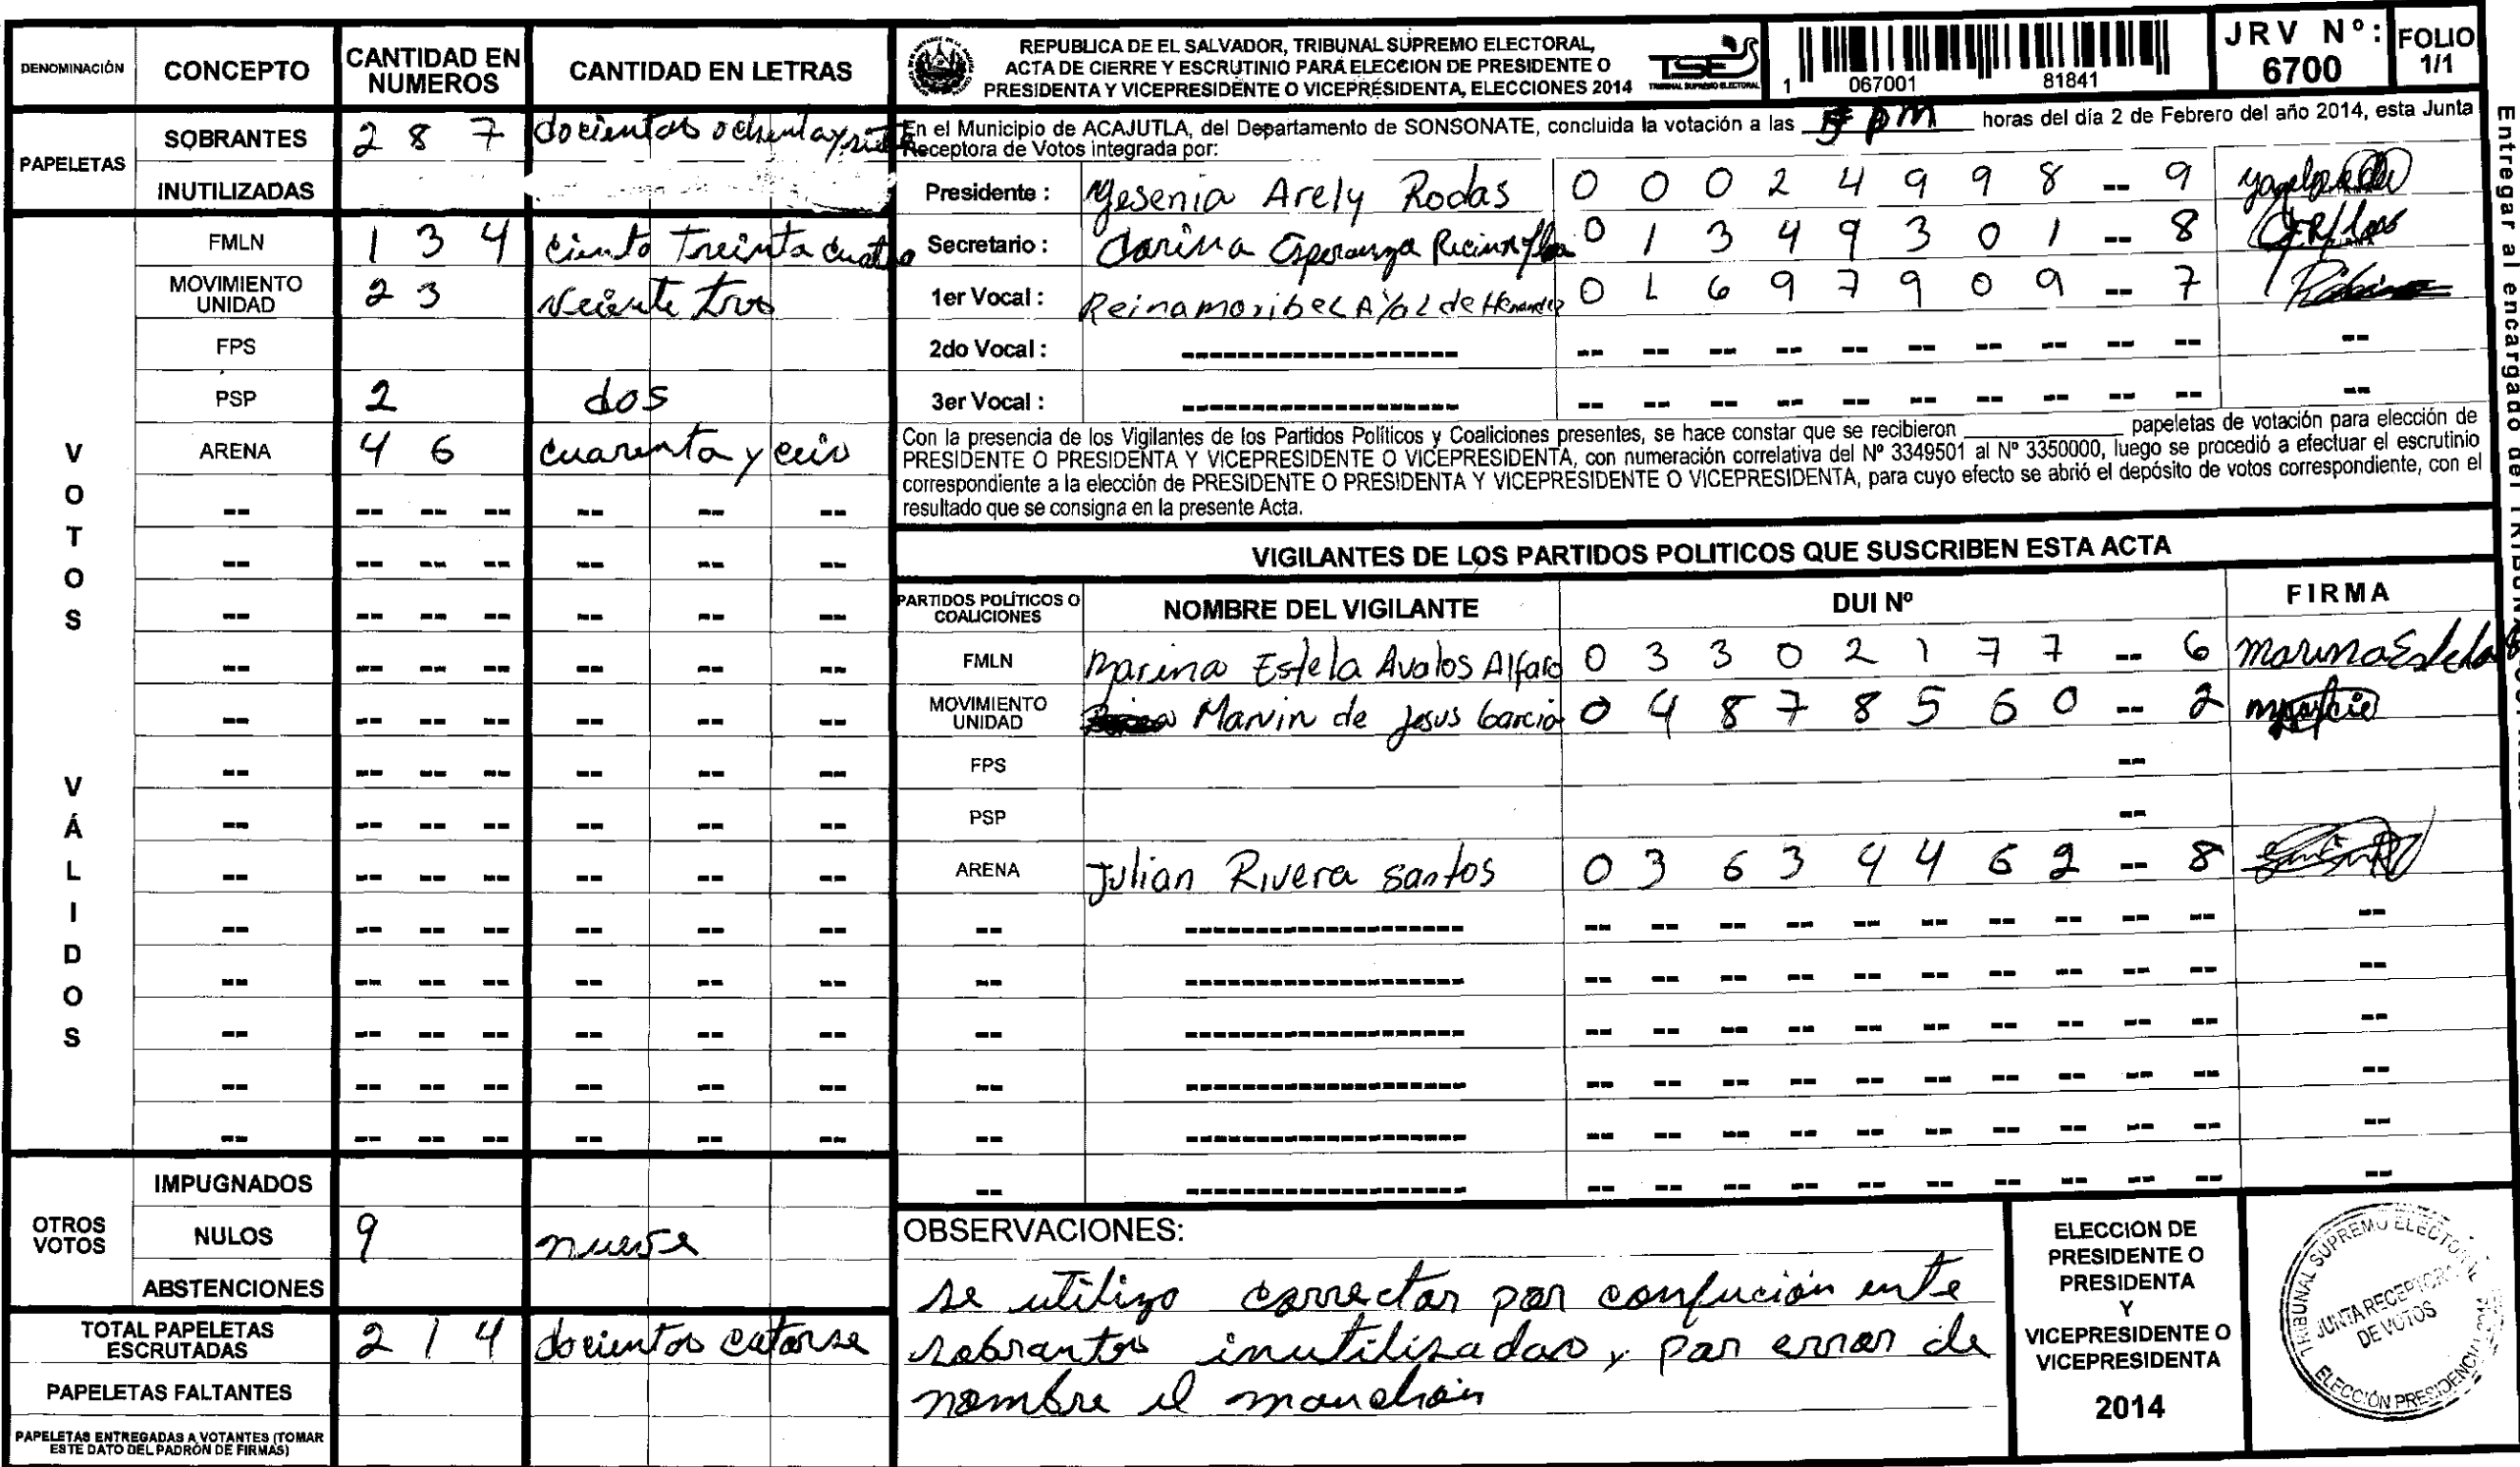 DENOMINACIÓN CONCEPTO CANTIDAD EN NUMEROS CANTIDAD EN LETRAS
PAPELETAS
SOBRANTES 2 8 7 docientos ochenta y siete
INUTILIZADAS
VOTOS VÁLIDOS
FMLN 1 3 4 ciento Treinta cuatro
MOVIMIENTO UNIDAD 2 3
FPS
PSP 2 dos
ARENA 4 6 cuarenta y ceis
-- -- -- -- -- -- --
-- -- -- -- -- -- --
-- -- -- -- -- -- --
-- -- -- -- -- -- --
-- -- -- -- -- -- --
-- -- -- -- -- -- --
-- -- -- -- -- -- --
-- -- -- -- -- -- --
-- -- -- -- -- -- --
-- -- -- -- -- -- --
-- -- -- -- -- -- --
-- -- -- -- -- -- --
-- -- -- -- -- -- --
OTROS VOTOS
IMPUGNADOS
NULOS 9 nueve
ABSTENCIONES
TOTAL PAPELETAS ESCRUTADAS 2 1 4 docientos catorse
PAPELETAS FALTANTES
PAPELETAS ENTREGADAS A VOTANTES (TOMAR
ESTE DATO DEL PADRÓN DE FIRMAS)
REPUBLICA DE EL SALVADOR, TRIBUNAL SUPREMO ELECTORAL,
ACTA DE CIERRE Y ESCRUTINIO PARA ELECCION DE PRESIDENTE O
PRESIDENTA Y VICEPRESIDENTE O VICEPRESIDENTA, ELECCIONES 2014
TSE
TRIBUNAL SUPREMO ELECTORAL
1 067001 81841
JRV Nº: 6700
FOLIO 1/1
En el Municipio de ACAJUTLA, del Departamento de SONSONATE, concluida la votación a las pm horas del día 2 de Febrero del año 2014, esta Junta
Receptora de Votos integrada por:
Presidente : Yesenia Arely Rodas 0 0 0 2 4 9 9 8 -- 9
Secretario : Esperanza 0 1 3 4 9 3 0 1 -- 8
1er Vocal : Reina maribel de 0 1 6 9 7 9 0 9 -- 7
2do Vocal : -------------------- -- -- -- -- -- -- -- -- -- -- --
3er Vocal : -------------------- -- -- -- -- -- -- -- -- -- -- --
Con la presencia de los Vigilantes de los Partidos Políticos y Coaliciones presentes, se hace constar que se recibieron ________ papeletas de votación para elección de
PRESIDENTE O PRESIDENTA Y VICEPRESIDENTE O VICEPRESIDENTA, con numeración correlativa del Nº 3349501 al Nº 3350000, luego se procedió a efectuar el escrutinio
correspondiente a la elección de PRESIDENTE O PRESIDENTA Y VICEPRESIDENTE O VICEPRESIDENTA, para cuyo efecto se abrió el depósito de votos correspondiente, con el
resultado que se consigna en la presente Acta.
VIGILANTES DE LOS PARTIDOS POLITICOS QUE SUSCRIBEN ESTA ACTA
PARTIDOS POLÍTICOS O COALICIONES NOMBRE DEL VIGILANTE DUI Nº FIRMA
FMLN Marina Estela Avalos Alfaro 0 3 3 0 2 1 7 7 -- 6 Marina Estela
MOVIMIENTO UNIDAD Marvin de Jesus Garcia 0 4 8 7 8 5 6 0 -- 2
FPS --
PSP --
ARENA Julian Rivera Santos 0 3 6 3 4 4 6 2 -- 8
-- -------------------- -- -- -- -- -- -- -- -- -- -- --
-- -------------------- -- -- -- -- -- -- -- -- -- -- --
-- -------------------- -- -- -- -- -- -- -- -- -- -- --
-- -------------------- -- -- -- -- -- -- -- -- -- -- --
-- -------------------- -- -- -- -- -- -- -- -- -- -- --
-- -------------------- -- -- -- -- -- -- -- -- -- -- --
OBSERVACIONES:
se utilizo corrector por confución ente
sobrantes inutilizadas y por error de
nombre el manchón
ELECCION DE
PRESIDENTE O
PRESIDENTA
Y
VICEPRESIDENTE O
VICEPRESIDENTA
2014
TRIBUNAL SUPREMO ELECTORAL
JUNTA RECEPTORA
DE VOTOS
ELECCIÓN PRESIDENCIAL
Entregar al encargado del